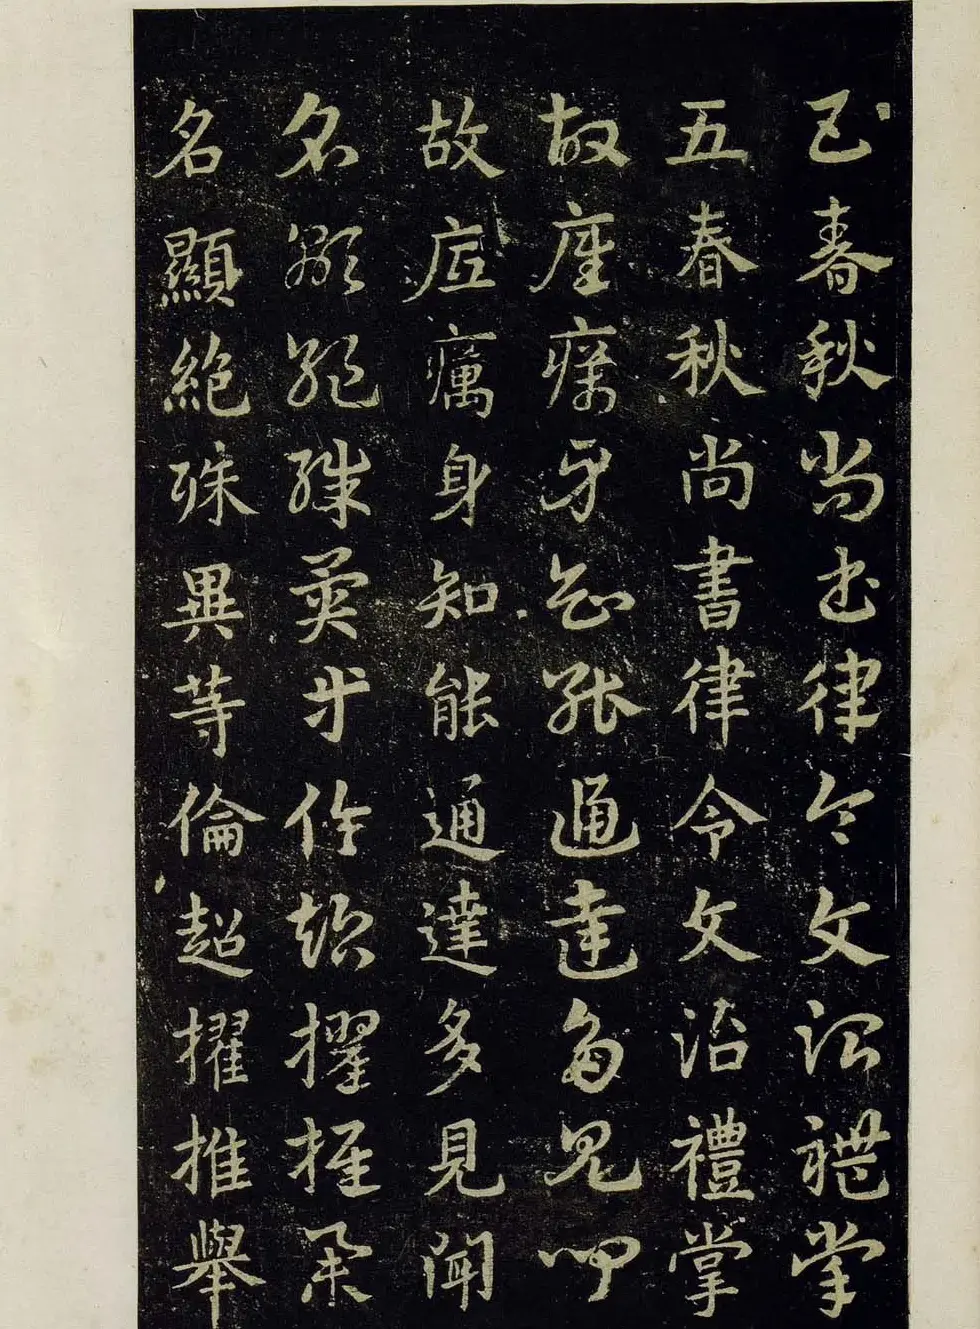 五春秋尚書律令文治禮掌
五春秋尚書律令文治禮掌
故底癘身知能通達多見聞
故底癘身知能通達多見聞
名顯絶殊異等倫超擢推舉
名顯絶殊異等倫超擢推舉